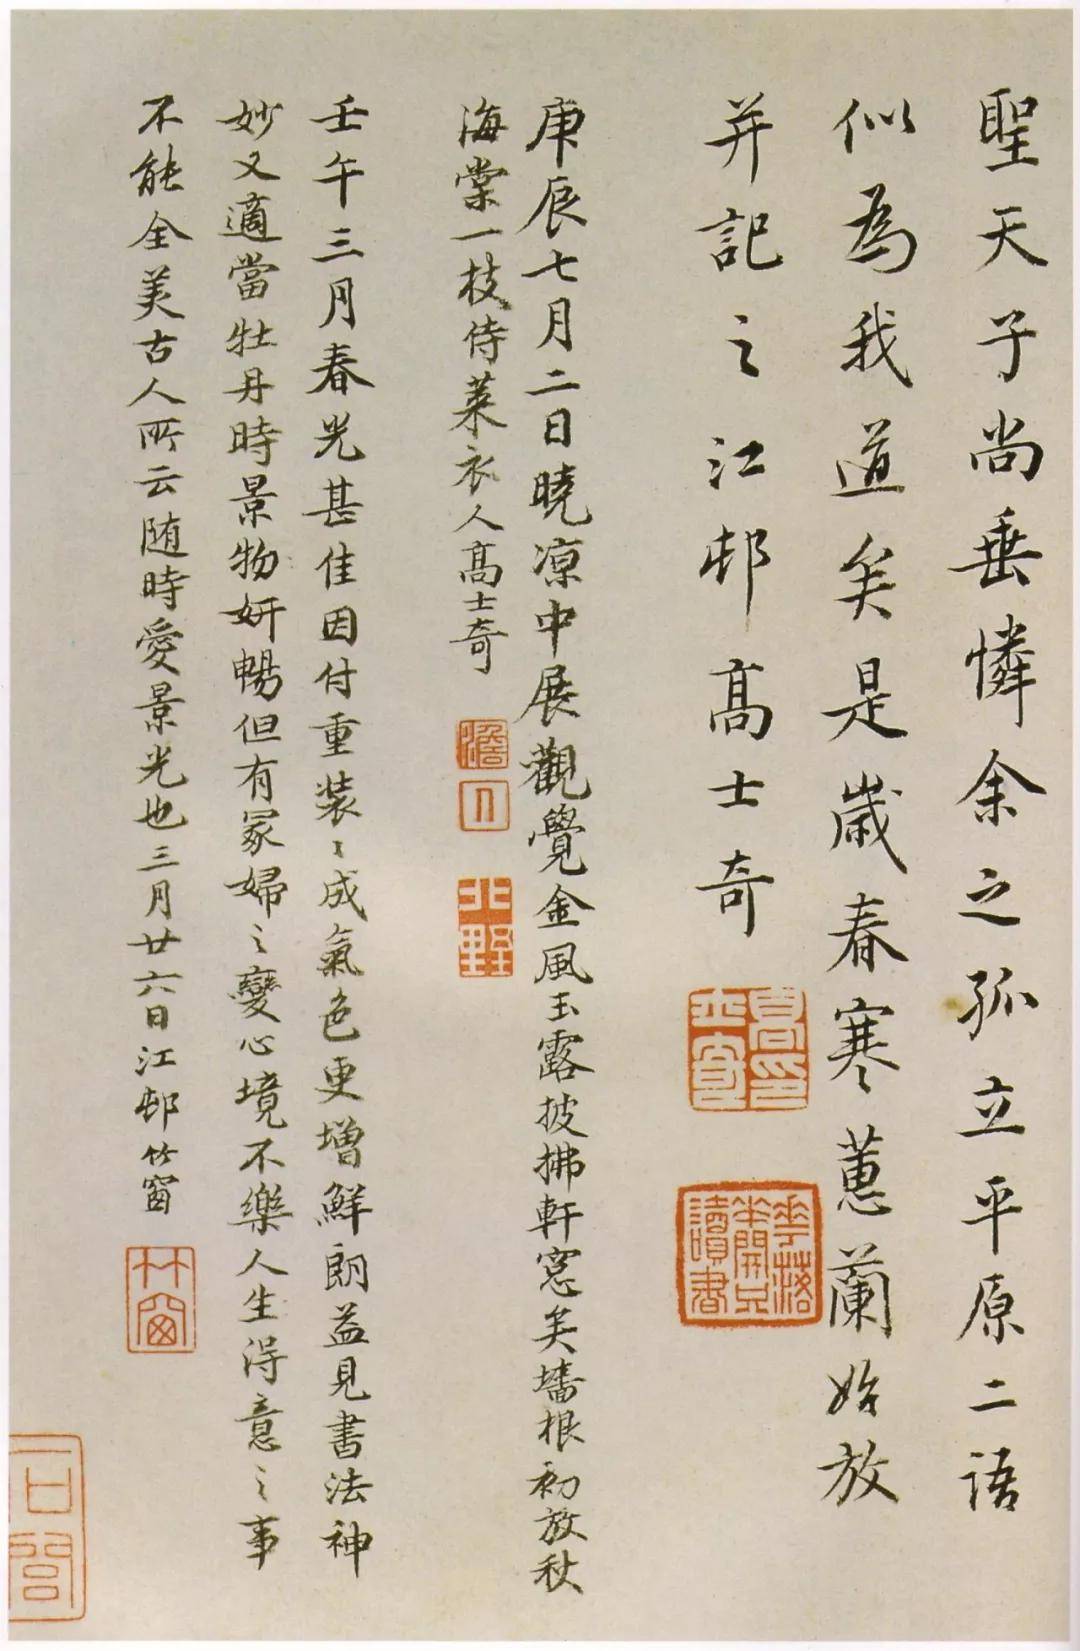 聖天子尚垂憐余之孤立平原二語
似為我道矣是歲春寒蕙蘭始放
并記之江邨高士奇
高士奇印
花落半開又讀書
庚辰七月二日曉涼中展觀覺金風玉露披拂軒窓矣墻根初放秋
海棠一枝侍萊衣人高士奇
澹人
北墅
壬午三月春光甚佳因付重装〻成氣色更增鮮朗益見書法神
妙又適當牡丹時景物妍暢但有冢婦之變心境不樂人生得意之事
不能全美古人所云随時愛景光也三月廿六日江邨竹窗
竹窗